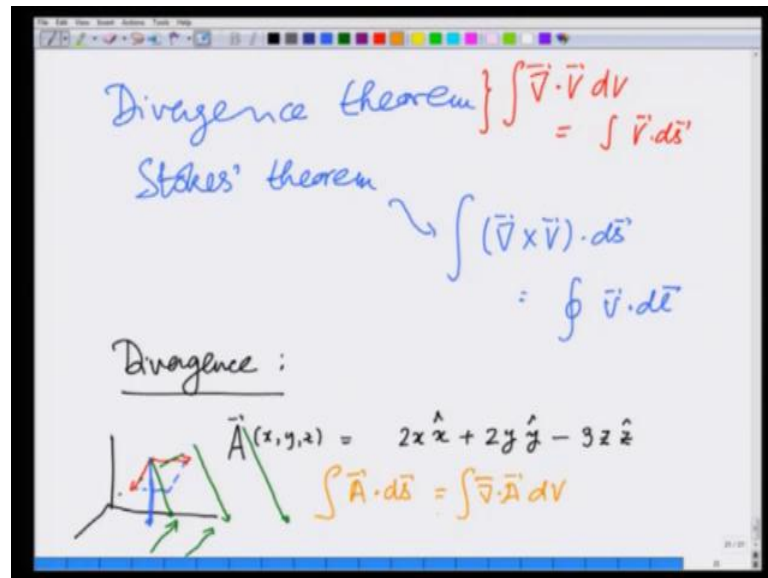 File Edit View Insert Actions Tools Help
Divergence theorem } ∫ ∇⃗·V⃗ dV
= ∫ V⃗·ds⃗
Stokes' theorem
∫ (∇⃗ × V⃗)·ds⃗
= ∮ V⃗·dl⃗
Divergence :
A⃗(x,y,z) = 2x x̂ + 2y ŷ − 3z ẑ
∫ A⃗·ds⃗ = ∫ ∇⃗·A⃗ dV